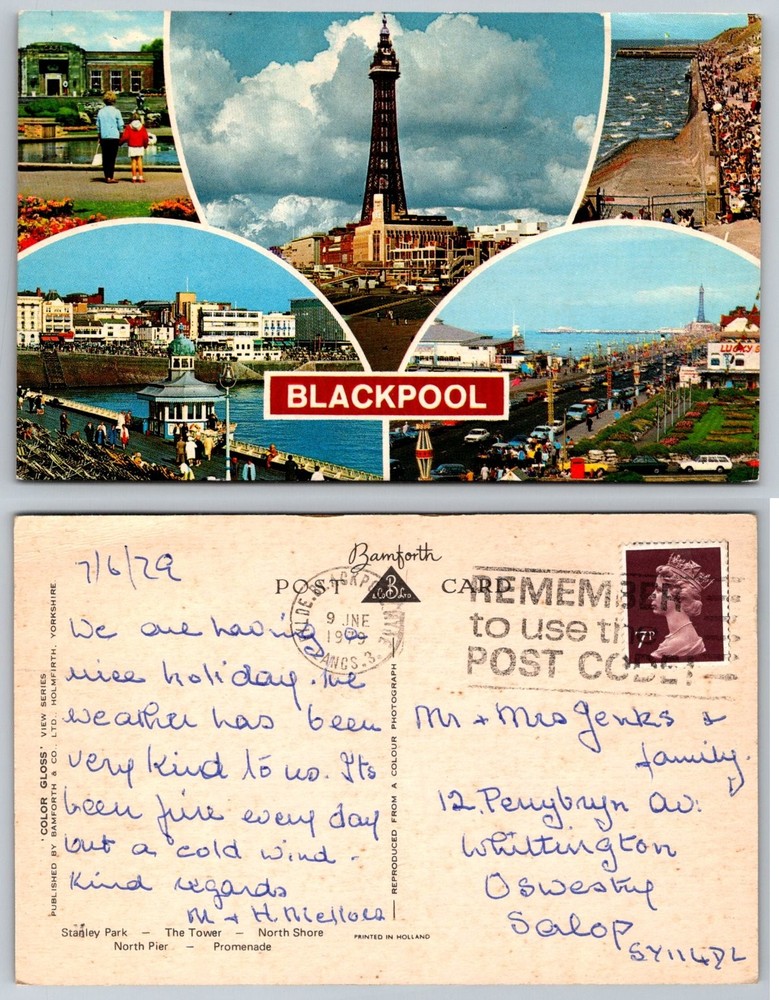 BLACKPOOL
LUCKY
7/6/79
We are having a
nice holiday. The
weather has been
very kind to us. Its
been fine every day
but a cold wind.
Kind regards
M + H
Stanley Park — The Tower — North Shore
North Pier — Promenade
'COLOR GLOSS' VIEW SERIES
PUBLISHED BY BAMFORTH & CO. LTD. HOLMFIRTH, YORKSHIRE
Bamforth
POST CARD
B
& Co Ltd
9 JNE
1979
LANCS.3.
REPRODUCED FROM A COLOUR PHOTOGRAPH
PRINTED IN HOLLAND
REMEMBER
to use the
POST CODE!
7P
Mr + Mrs Jenks &
family.
12, Penybryn Av:
Whittington
Oswestry
Salop
SY11 4DL